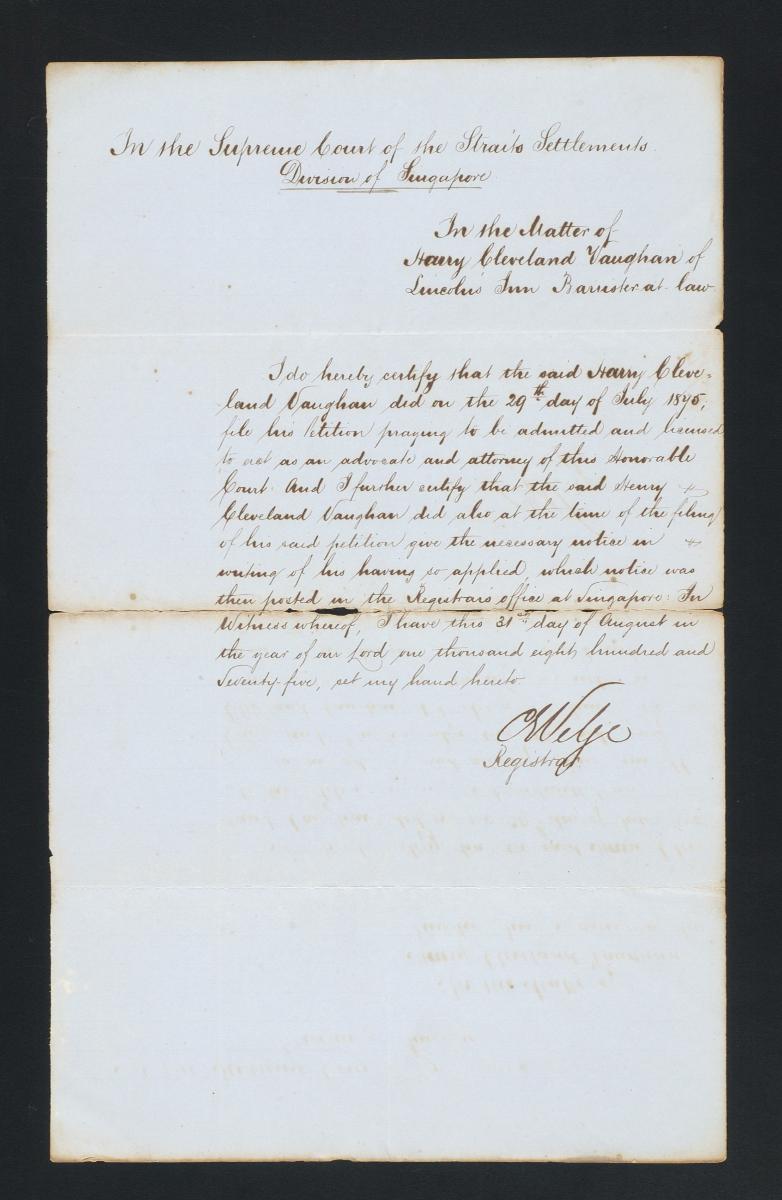 In the Supreme Court of the Straits Settlements
Division of Singapore
In the Matter of
Harry Cleveland Vaughan of
Lincoln's Inn Barrister at law
I do hereby certify that the said Harry Cleve=
land Vaughan did on the 29th day of July 1875,
file his Petition praying to be admitted and licensed
to act as an advocate and attorney of this Honorable
Court. And I further certify that the said Henry
Cleveland Vaughan did also at the time of the filing
of his said petition give the necessary notice in
writing of his having so applied which notice was
then posted in the Registrars office at Singapore: In
Witness whereof, I have this 31st day of August in
the year of our Lord one thousand eight hundred and
Seventy-five, set my hand hereto.
Registrar